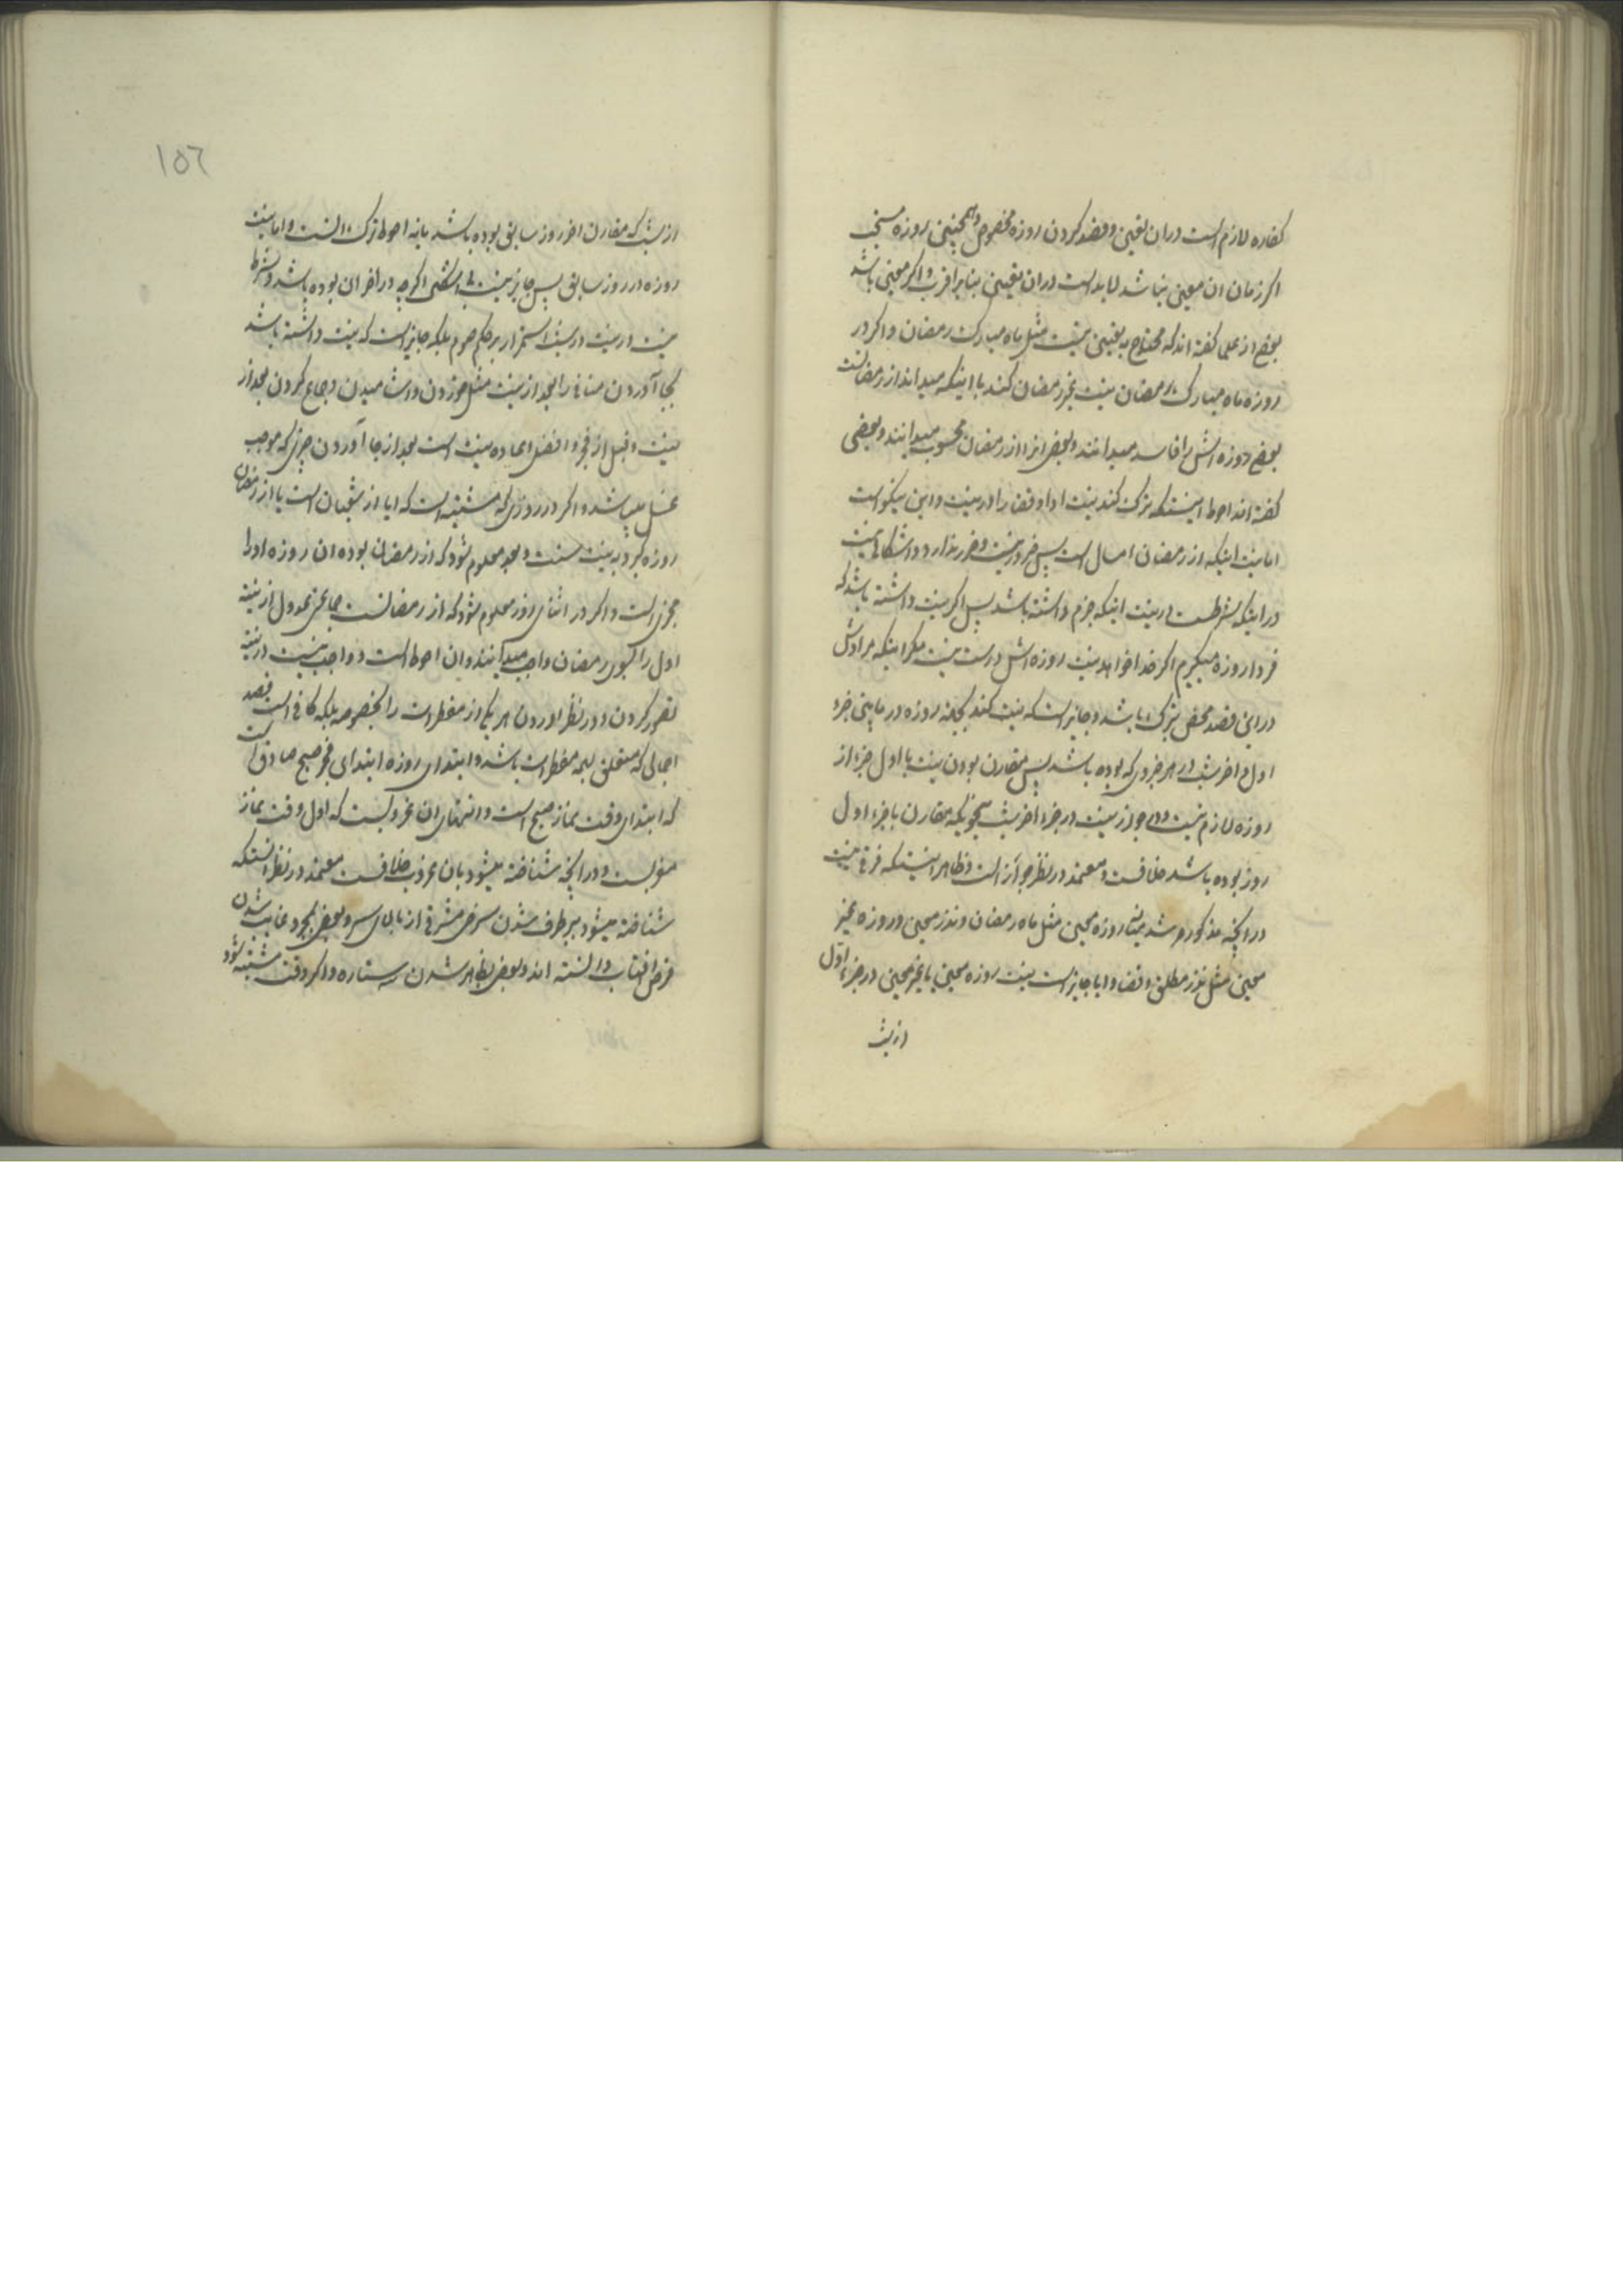 کفاره لازم است در ان تعیین و قصد کردن روزه مخصوص و همچنین روزه سنتی
اکر زمان ان معین نباشد لابد است در ان تعیین بنابر اقرب و اکر معین باشد
بعضی از علما کفته اند که محتاج به تعیین نیست مثل ماه مبارک رمضان و اکر در
روزه ماه مبارک رمضان نیت غیر رمضان کند با اینکه میداند از رمضانست
بعضی روزه اش را فاسد میدانند و بعضی انرا از رمضان محسوب میدانند و بعضی
کفته اند احوط اینستکه ترک کند نیت ادا و قضا را در نیت و این نیکو است
اما نیت اینکه از رمضان امسال است پس ضرور نیست و ضرر ندارد و اشکالی نیست
در اینکه شرطست در نیت اینکه جزم داشته باشد پس اکر نیت داشته باشد که
فردا روزه میکیرم اکر خدا خواهد نیت روزه اش درست نیست مکر اینکه مرادش
در این قصد محض تبرک باشد و جایز است که نیت کند بجهة روزه در مابین جزء
اول و اخر شب در هر جزوی که بوده باشد پس مقارن بودن نیت با اول جزء از
روزه لازم نیست و در جواز نیت در جزء اخر شب بنحویکه مقارن با جزء اول
روز بوده باشد خلافست و معتمد در نظر جواز است و ظاهر اینستکه فرقی نیست
در انچه مذکور شد میانه روزه معین مثل ماه رمضان و نذر معین و روزه غیر
معین مثل نذر مطلق و قضا و ایا جایز است نیت روزه معین یا غیر معین در جزء اول
از شب
۱۵۶
از شب که مقارن اخر روز سابق بوده باشد یا نه احوط ترک انست و اما نیت
روزه در روز سابق پس جایز نیست علی الاقوی اکرچه در اخر ان بوده باشد و شرط
نیست در نیت در شب استمرار بر حکم صوم بلکه جایز است که نیت داشته باشد
بجا آوردن منافی را بعد از نیت مثل خوردن و اشامیدن و جماع کردن بعد از
نیت و قبل از فجر و افضل اعاده نیت است بعد از بجا آوردن چیزی که موجب
غسل میباشد و اکر در روزی که مشتبه است که ایا از شعبان است یا از رمضان
روزه کیرد به نیت سنت و بعد معلوم شود که از رمضان بوده ان روزه او را
مجزی است و اکر در اثنای روز معلوم شود که از رمضانست جماعتی عدول از نیة
اول را بسوی رمضان واجب میدانند و ان احوط است و واجب نیست در نیة
تصور کردن و در نظر اوردن هر یک از مفطرات را بخصوصه بلکه کافی است قصد
اجمالی که متعلق بهمه مفطرات باشد و ابتدای روزه ابتدای فجر صبح صادق است
که ابتدای وقت نماز صبح است و انتهای ان غروبست که اول وقت نماز
مغربست و در انچه شناخته میشود بان غروب خلافست معتمد در نظر انستکه
شناخته میشود ببرطرف شدن سرخی مشرقی از بالای سر و بعضی بمجرد غایب شدن
قرص افتاب دانسته اند و بعضی بظاهر شدن سه ستاره و اکر وقت مشتبه شود